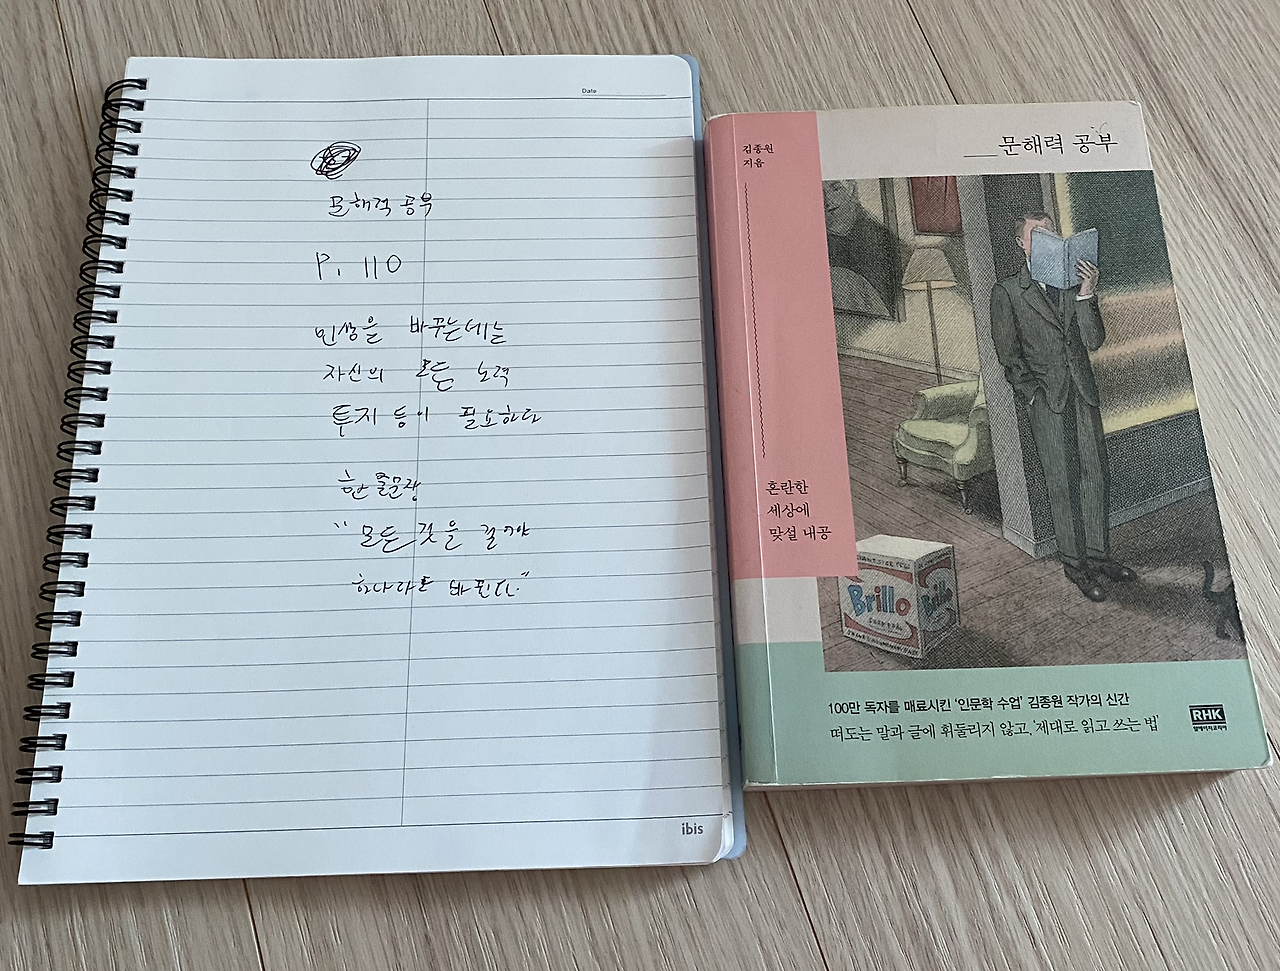 Date
문해력 공부
P. 110
인생을 바꾸는데는
자신의 모든 노력
투자 등이 필요하다
한 줄문장
"모든 것을 걸어야
하나라도 바뀐다."
ibis
김종원
지음
문해력 공부
혼란한
세상에
맞설 내공
Brillo
Brillo
100만 독자를 매료시킨 '인문학 수업' 김종원 작가의 신간
떠도는 말과 글에 휘둘리지 않고, '제대로 읽고 쓰는 법'
RHK
알에이치코리아